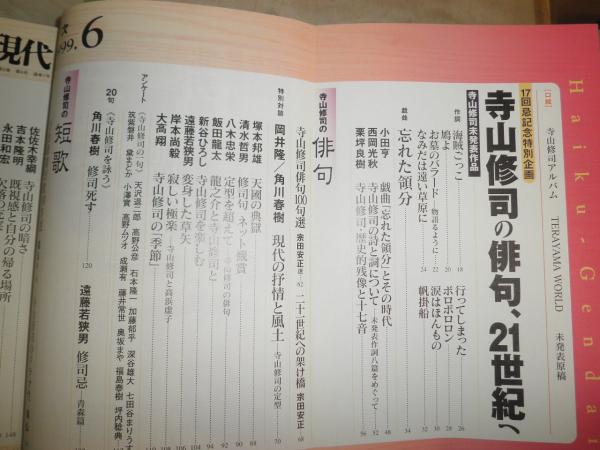 Haiku-Gendai
[口絵] 寺山修司アルバム TERAYAMA WORLD 未発表原稿
17回忌記念特別企画
寺山修司の俳句、21世紀へ
寺山修司未発表作品
作詞 海賊ごっこ 18
鳩よ 20
お墓のバラード―物語るように 22
なみだは遠い草原に 24
行ってしまった 26
ボロボロロン 28
涙はほんもの 30
帆掛船 32
戯曲 忘れた領分 34
小田亨 戯曲「忘れた領分」とその時代 48
西岡光秋 寺山修司の詩と詞について―未発表作詞八篇をめぐって 52
栗坪良樹 寺山修司・歴史的残像と十七音 56
寺山修司の俳句
寺山修司俳句100句選 宗田安正選 62
二十一世紀への架け橋 宗田安正 68
特別対談 岡井隆/角川春樹 現代の抒情と風土 寺山修司の定型 70
塚本邦雄 天國の典獄 88
清水哲男 修司句 ネット観賞 90
八木忠栄 定型を超えて―寺山修司の俳句 92
飯田龍太 龍之介と寺山修司と 94
新谷ひろし 寺山修司を楽しむ
遠藤若狭男 変身した草矢
岸本尚毅 寂しい極楽―寺山修司と高浜虚子
大高翔 寺山修司の「季節」
アンケート 《寺山修司の一句》
天沢退二郎 高野公彦 石本隆一 加藤郁乎 深谷雄大 七田谷まりうす
筑紫磐井 黛まどか 小澤實 高野ムツオ 成瀬有 藤井常世 奥坂まや 福島泰樹 坪内稔典
20句 《寺山修司を詠う》
角川春樹 修司死す 120
遠藤若狭男 修司忌―青森篇
寺山修司の短歌
佐佐木幸綱 寺山修司の暗さ
吉本隆明 既視感と自分の帰る場所
永田和宏
次
99.6
現代